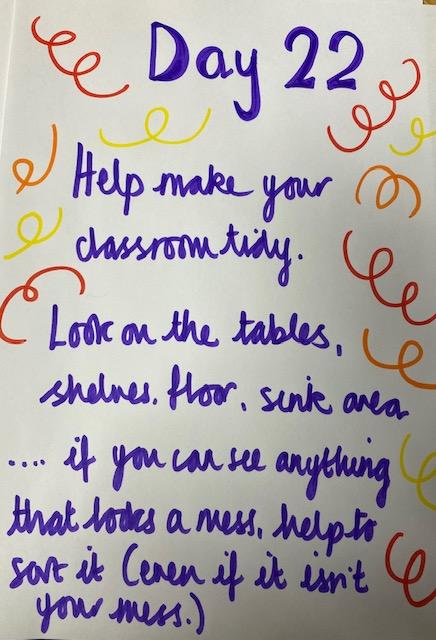 Day 22
Help make your
classroom tidy.
Look on the tables,
shelves, floor, sink area
.... if you can see anything
that looks a mess, help to
sort it (even if it isn't
your mess.)